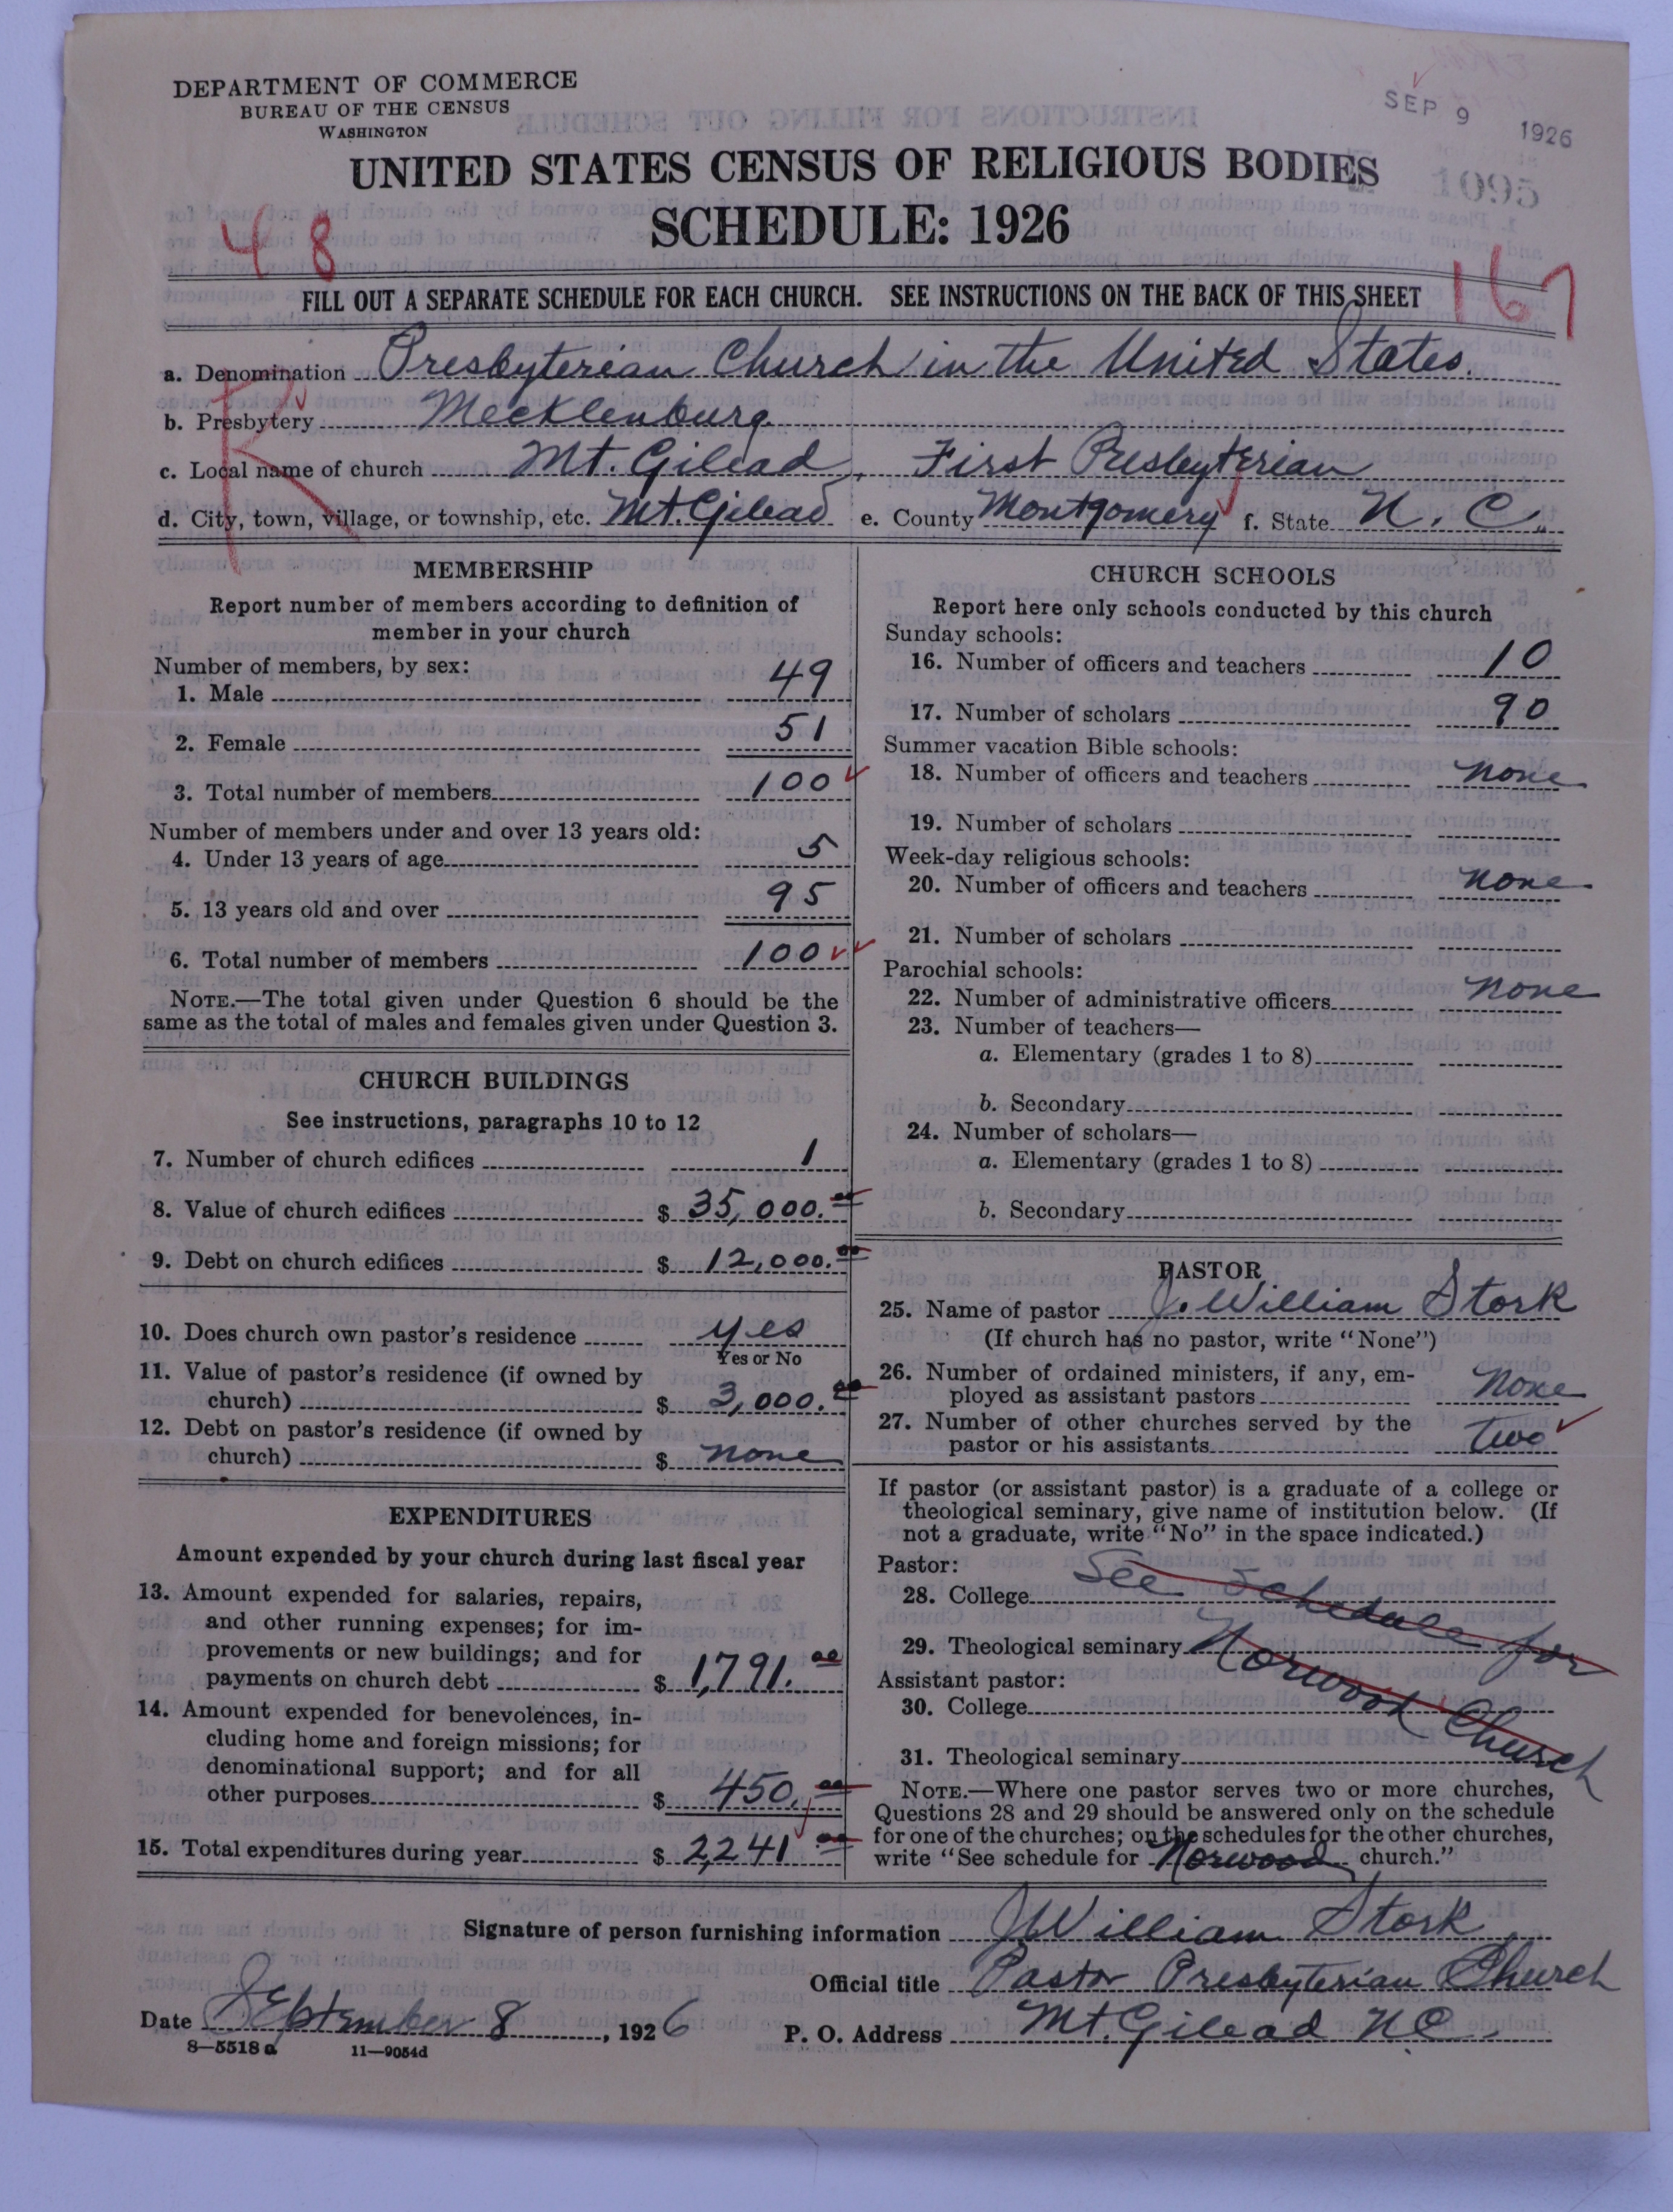 DEPARTMENT OF COMMERCE
BUREAU OF THE CENSUS
WASHINGTON
SEP 9 1926
1095
UNITED STATES CENSUS OF RELIGIOUS BODIES
SCHEDULE: 1926
48
167
FILL OUT A SEPARATE SCHEDULE FOR EACH CHURCH. SEE INSTRUCTIONS ON THE BACK OF THIS SHEET
R
a. Denomination Presbyterian Church in the United States.
b. Presbytery Mecklenburg
c. Local name of church Mt. Gilead, First Presbyterian
d. City, town, village, or township, etc. Mt. Gilead e. County Montgomery f. State N. C.
MEMBERSHIP
Report number of members according to definition of
member in your church
Number of members, by sex:
1. Male 49
2. Female 51
3. Total number of members 100
Number of members under and over 13 years old:
4. Under 13 years of age 5
5. 13 years old and over 95
6. Total number of members 100
NOTE.—The total given under Question 6 should be the
same as the total of males and females given under Question 3.
CHURCH BUILDINGS
See instructions, paragraphs 10 to 12
7. Number of church edifices 1
8. Value of church edifices $ 35,000.00
9. Debt on church edifices $ 12,000.00
10. Does church own pastor's residence yes
Yes or No
11. Value of pastor's residence (if owned by
church) $ 3,000.00
12. Debt on pastor's residence (if owned by
church) $ none
EXPENDITURES
Amount expended by your church during last fiscal year
13. Amount expended for salaries, repairs,
and other running expenses; for im-
provements or new buildings; and for
payments on church debt $ 1,791.00
14. Amount expended for benevolences, in-
cluding home and foreign missions; for
denominational support; and for all
other purposes $ 450.00
15. Total expenditures during year $ 2,241 00
CHURCH SCHOOLS
Report here only schools conducted by this church
Sunday schools:
16. Number of officers and teachers 10
17. Number of scholars 90
Summer vacation Bible schools:
18. Number of officers and teachers none
19. Number of scholars
Week-day religious schools:
20. Number of officers and teachers none
21. Number of scholars
Parochial schools:
22. Number of administrative officers none
23. Number of teachers—
a. Elementary (grades 1 to 8)
b. Secondary
24. Number of scholars—
a. Elementary (grades 1 to 8)
b. Secondary
PASTOR
25. Name of pastor J. William Stork
(If church has no pastor, write "None")
26. Number of ordained ministers, if any, em-
ployed as assistant pastors None
27. Number of other churches served by the
pastor or his assistants two
If pastor (or assistant pastor) is a graduate of a college or
theological seminary, give name of institution below. (If
not a graduate, write "No" in the space indicated.)
Pastor:
28. College See Schedule for
29. Theological seminary Norwood Church
Assistant pastor:
30. College
31. Theological seminary
NOTE.—Where one pastor serves two or more churches,
Questions 28 and 29 should be answered only on the schedule
for one of the churches; on the schedules for the other churches,
write "See schedule for Norwood church."
Signature of person furnishing information J William Stork
Official title Pastor Presbyterian Church
Date September 8, 1926 P. O. Address Mt. Gilead N C.
8—5518a 11—9054d